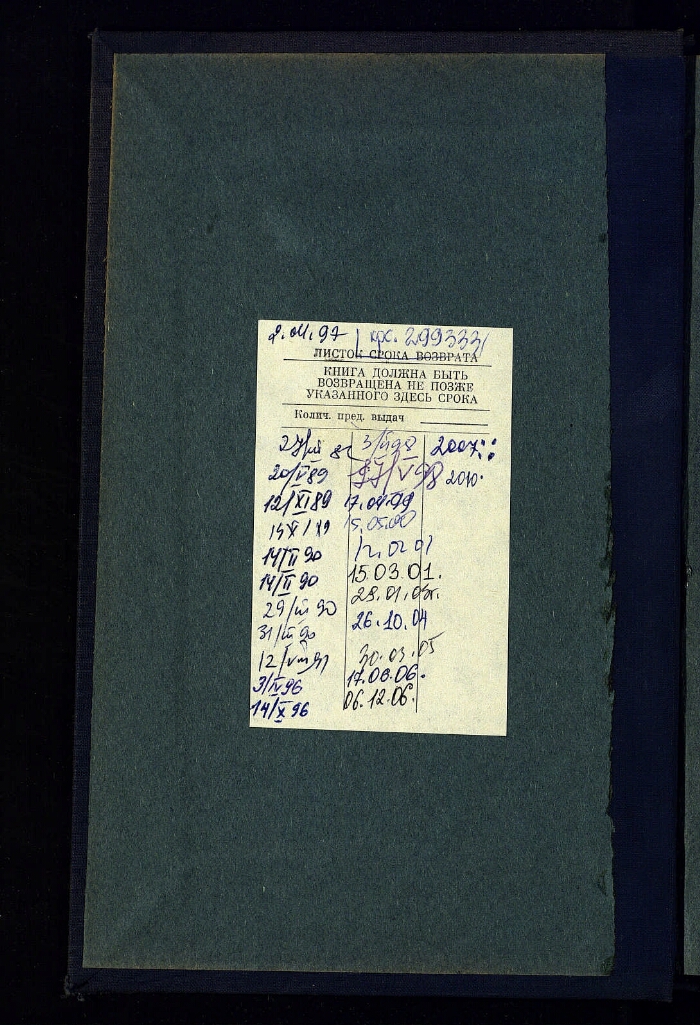 299333
ЛИСТОК СРОКА ВОЗВРАТА
КНИГА ДОЛЖНА БЫТЬ
ВОЗВРАЩЕНА НЕ ПОЗЖЕ
УКАЗАННОГО ЗДЕСЬ СРОКА
Колич. пред. выдач
20/V 89
12/XI 89
14/II 90
14/II 90
29/III 90
31/III 90
12/VIII 91
3/IV 96
14/X 96
3/II 98
27/V 98
17.04.99
15.05.00
12.02.01
15.03.01.
26.10.04
30.03.05
17.08.06.
06.12.06.
2007
2010.